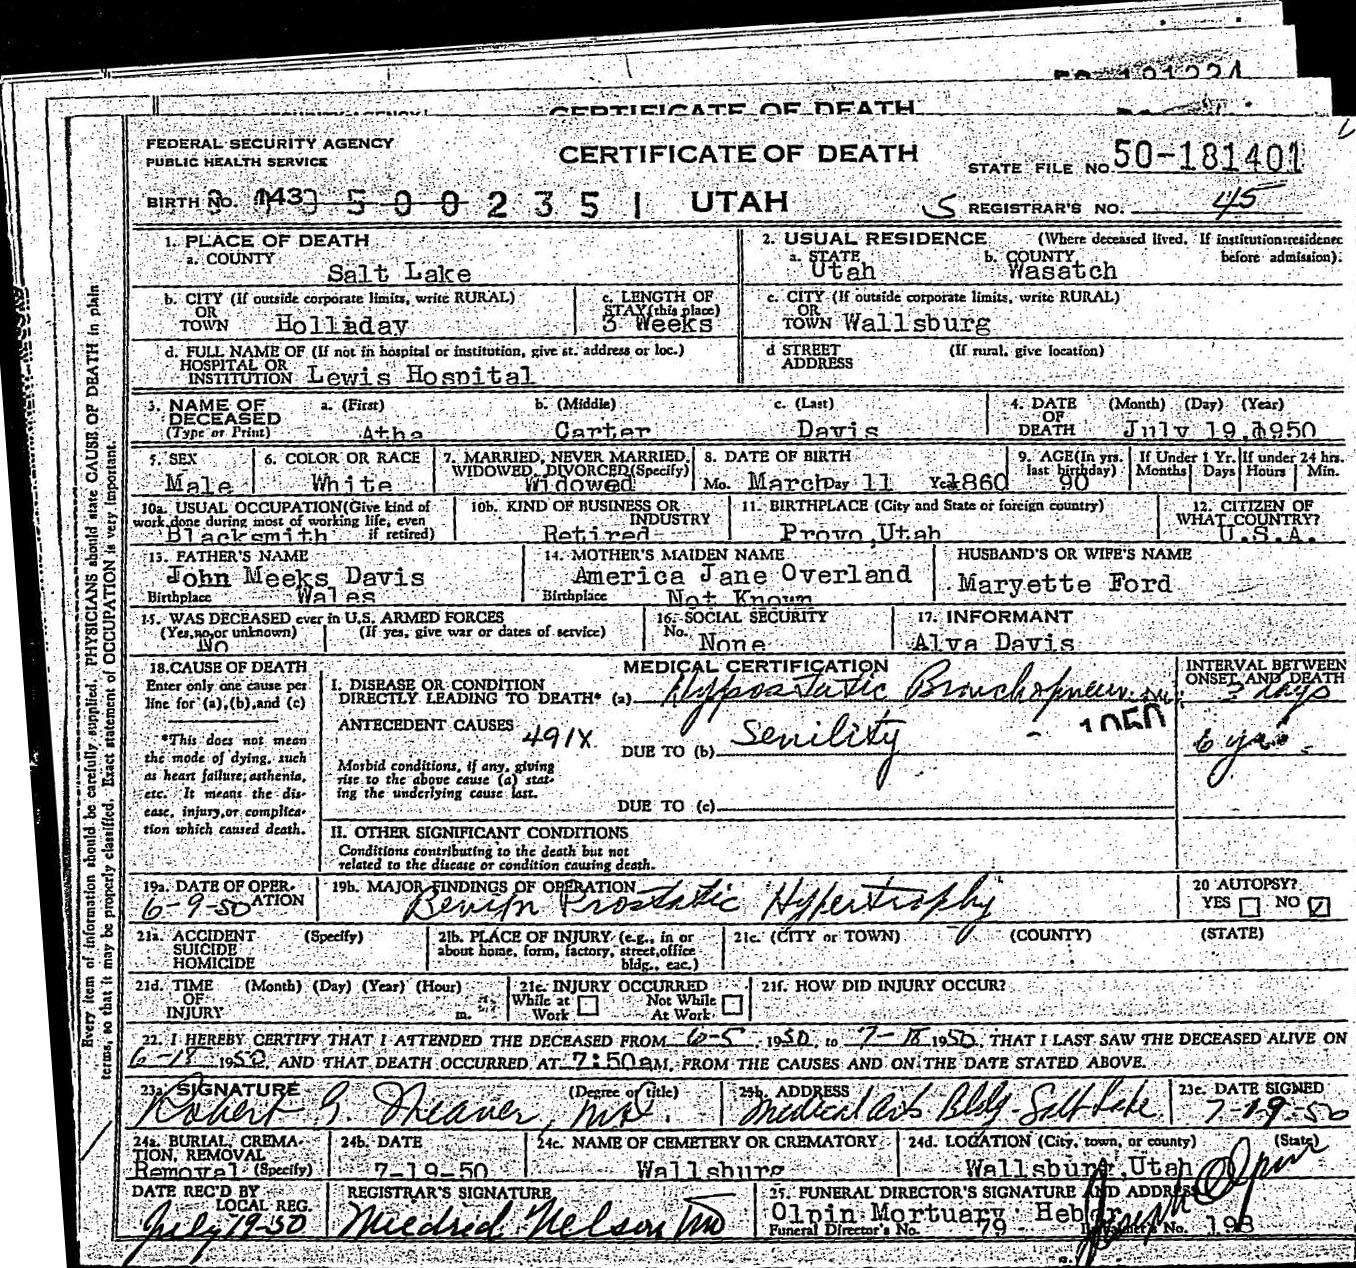 50-181224
CERTIFICATE OF DEATH
FEDERAL SECURITY AGENCY
PUBLIC HEALTH SERVICE
CERTIFICATE OF DEATH
STATE FILE NO. 50-181401
BIRTH NO. 143 5 0 0 2 3 5 1 UTAH
REGISTRAR'S NO. 45
1. PLACE OF DEATH
a. COUNTY
Salt Lake
2. USUAL RESIDENCE (Where deceased lived. If institution: residence before admission).
a. STATE
Utah
b. COUNTY
Wasatch
b. CITY (If outside corporate limits, write RURAL)
OR
TOWN Holliday
c. LENGTH OF
STAY (this place)
3 Weeks
c. CITY (If outside corporate limits, write RURAL)
OR
TOWN Wallsburg
d. FULL NAME OF (If not in hospital or institution, give st. address or loc.)
HOSPITAL OR
INSTITUTION Lewis Hospital
d STREET (If rural, give location)
ADDRESS
3. NAME OF
DECEASED
(Type or Print)
a. (First)
Atha
b. (Middle)
Carter
c. (Last)
Davis
4. DATE (Month) (Day) (Year)
OF
DEATH July 19, 1950
5. SEX
Male
6. COLOR OR RACE
White
7. MARRIED, NEVER MARRIED,
WIDOWED, DIVORCED (Specify)
Widowed
8. DATE OF BIRTH
Mo. March Day 11 Yr. 1860
9. AGE (In yrs.
last birthday)
90
If Under 1 Yr.
Months Days
If under 24 hrs.
Hours Min.
10a. USUAL OCCUPATION (Give kind of
work done during most of working life, even
if retired)
Blacksmith
10b. KIND OF BUSINESS OR
INDUSTRY
Retired
11. BIRTHPLACE (City and State or foreign country)
Provo, Utah
12. CITIZEN OF
WHAT COUNTRY?
U.S.A.
13. FATHER'S NAME
John Meeks Davis
Birthplace Wales
14. MOTHER'S MAIDEN NAME
America Jane Overland
Birthplace Not Known
HUSBAND'S OR WIFE'S NAME
Maryette Ford
15. WAS DECEASED ever in U.S. ARMED FORCES
(Yes, no, or unknown) (If yes, give war or dates of service)
No
16. SOCIAL SECURITY
No. None
17. INFORMANT
Alva Davis
18. CAUSE OF DEATH
Enter only one cause per
line for (a), (b), and (c)
*This does not mean
the mode of dying, such
as heart failure, asthenia,
etc. It means the dis-
ease, injury, or complica-
tion which caused death.
MEDICAL CERTIFICATION
I. DISEASE OR CONDITION
DIRECTLY LEADING TO DEATH* (a) Hypostatic
ANTECEDENT CAUSES 491X
DUE TO (b) Senility
1950
Morbid conditions, if any, giving
rise to the above cause (a) stat-
ing the underlying cause last.
DUE TO (c)
II. OTHER SIGNIFICANT CONDITIONS
Conditions contributing to the death but not
related to the disease or condition causing death.
INTERVAL BETWEEN
ONSET AND DEATH
3 days
6 yrs.
19a. DATE OF OPER-
ATION
6-9-50
19b. MAJOR FINDINGS OF OPERATION
Benign Prostatic Hypertrophy
20 AUTOPSY?
YES NO
21a. ACCIDENT (Specify)
SUICIDE
HOMICIDE
21b. PLACE OF INJURY (e.g., in or
about home, form, factory, street, office
bldg., eac.)
21c. (CITY or TOWN) (COUNTY) (STATE)
21d. TIME (Month) (Day) (Year) (Hour)
OF
INJURY m.
21e. INJURY OCCURRED
While at Work Not While At Work
21f. HOW DID INJURY OCCUR?
22. I HEREBY CERTIFY THAT I ATTENDED THE DECEASED FROM 6-5 1950, to 7-18 1950, THAT I LAST SAW THE DECEASED ALIVE ON
6-18 1950, AND THAT DEATH OCCURRED AT 7:50 aM, FROM THE CAUSES AND ON THE DATE STATED ABOVE.
23a. SIGNATURE (Degree or title)
Robert G Weaver, M.D.
23b. ADDRESS
Medical Arts Bldg - Salt Lake
23c. DATE SIGNED
7-19-50
24a. BURIAL, CREMA-
TION, REMOVAL
Removal (Specify)
24b. DATE
7-19-50
24c. NAME OF CEMETERY OR CREMATORY
Wallsburg
24d. LOCATION (City, town, or county) (State)
Wallsburg, Utah
DATE REC'D BY
LOCAL REG.
July 19-50
REGISTRAR'S SIGNATURE
Mildred Nelson
25. FUNERAL DIRECTOR'S SIGNATURE AND ADDRESS
Olpin Mortuary Heber
Funeral Director's No. 79 No. 198
Every item of information should be carefully supplied. PHYSICIANS should state CAUSE OF DEATH in plain
terms, so that it may be properly classified. Exact statement of OCCUPATION is very important.